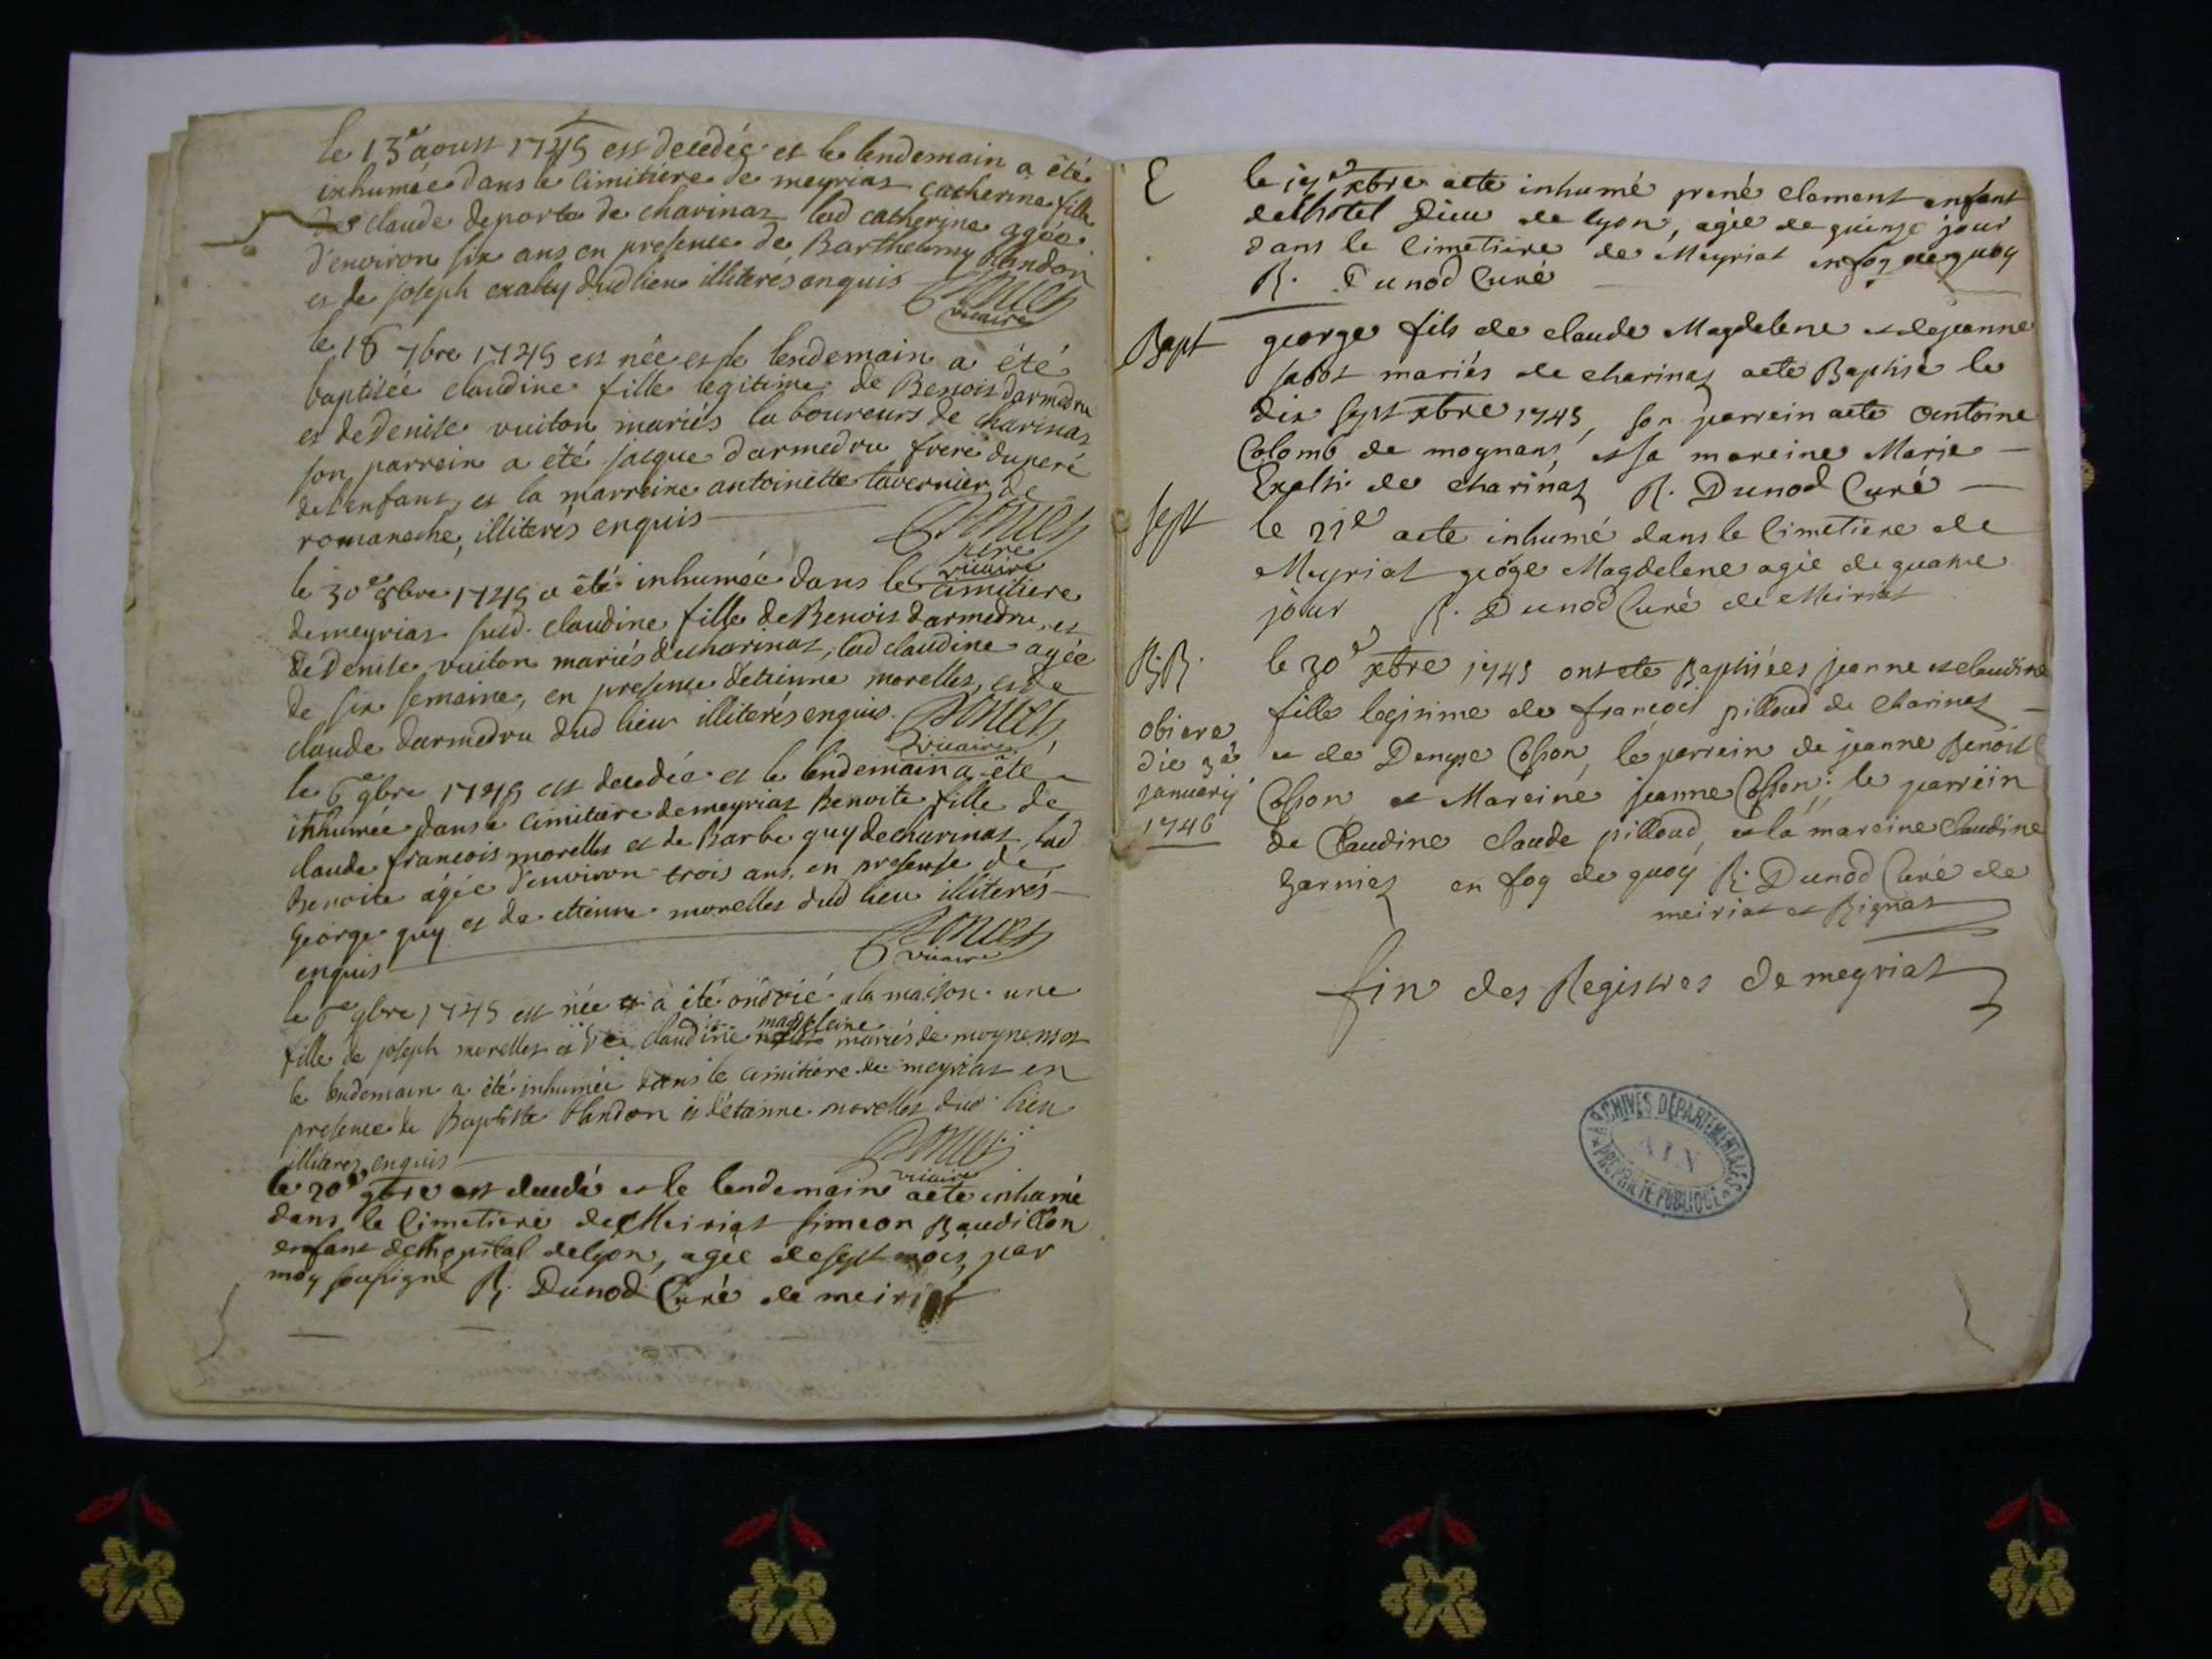 le 13e aoust 1745 est decedée et le lendemain a été
inhumée dans le cimitiére de meyrias catherine fille
de claude deporte de charinas lad catherine agée
d'environ six ans en presence de Barthelemy blandon
et de joseph exalty dud lieu illiterés enquis
vicaire
le 18 7bre 1745 est née et le lendemain a été
baptisée claudine fille legitime de Benois darmedru
et de Denise vuiton mariés laboureurs de charinas
son parrein a été jacque darmedru frere du pere
de l'enfant, et la marreine antoinette tavernier de
romaneche, illiterés enquis
vicaire
le 30e 8bre 1745 a été inhumée dans le cimitiere
de meyrias susd. claudine fille de Benois darmedru, et
de Denise vuiton mariés de charinas, lad claudine agée
de six semaine, en presence d'etienne morelles, et de
claude darmedru dud lieu illiterés enquis.
vicaire
le 6e 9bre 1745 est decedée et le lendemain a été
inhumée dans le cimitiere de meyrias Benoite fille de
claude francois morelles et de Barbe guy de charinas, lad
Benoite agée d'environ trois ans. en presense de
George guy et de etienne morelles dud lieu illiterés
enquis
vicaire
le 9bre 1745 est née et a été ondoié a la maison une
magdeleine
fille de joseph morelles et de claudine mariés de moynens et
le lendemain a été inhumée dans le cimitiére de meyrias en
presence de Baptiste blandon et d'etienne morelles dud. lieu
illiterés enquis
vicaire
le 20e 9bre est decedé et le lendemain a eté inhumé
dans le Cimetiere de Meiriat simeon Baudillon
enfant de lhopital de lyon, agée de sept mois, par
moy soussigné R. Dunod Curé de meiriat
E le 17e xbre a eté inhumé prené clement enfant
de lhotel Dieu de lyon, agée de quinze jour
dans le Cimetiere de Meyriat en foy de quoy
R. Dunod Curé
Bapt george fils de claude Magdelene et de jeanne
jabot mariés de charinas a eté Baptisé le
dix sept xbre 1745, son parrein a eté antoine
Colomb de mognans, et sa mareine Marie
Exalti de charinas R. Dunod Curé
sept le 21e a eté inhumé dans le Cimetiere de
Meyriat geóge Magdelene agée de quatre
jour R. Dunod Curé de Meiriat
B.B. le 30e xbre 1745 ont eté Baptisées jeanne et claudine
fille legitime de françois pilloud de charinas
obiere
die 3a
januarÿ
1746
et de Denyse Cosson, le parrein de jeanne Benoist
Cosson et Mareine jeanne Cosson: le parrein
de Claudine claude pilloud, et la mareine claudine
garnier en foy de quoy R. Dunod Curé de
meiriat et Rignat
fin des Registres de meyriat
ARCHIVES DÉPARTEMENTALES
AIN
PROPRIÉTÉ PUBLIQUE